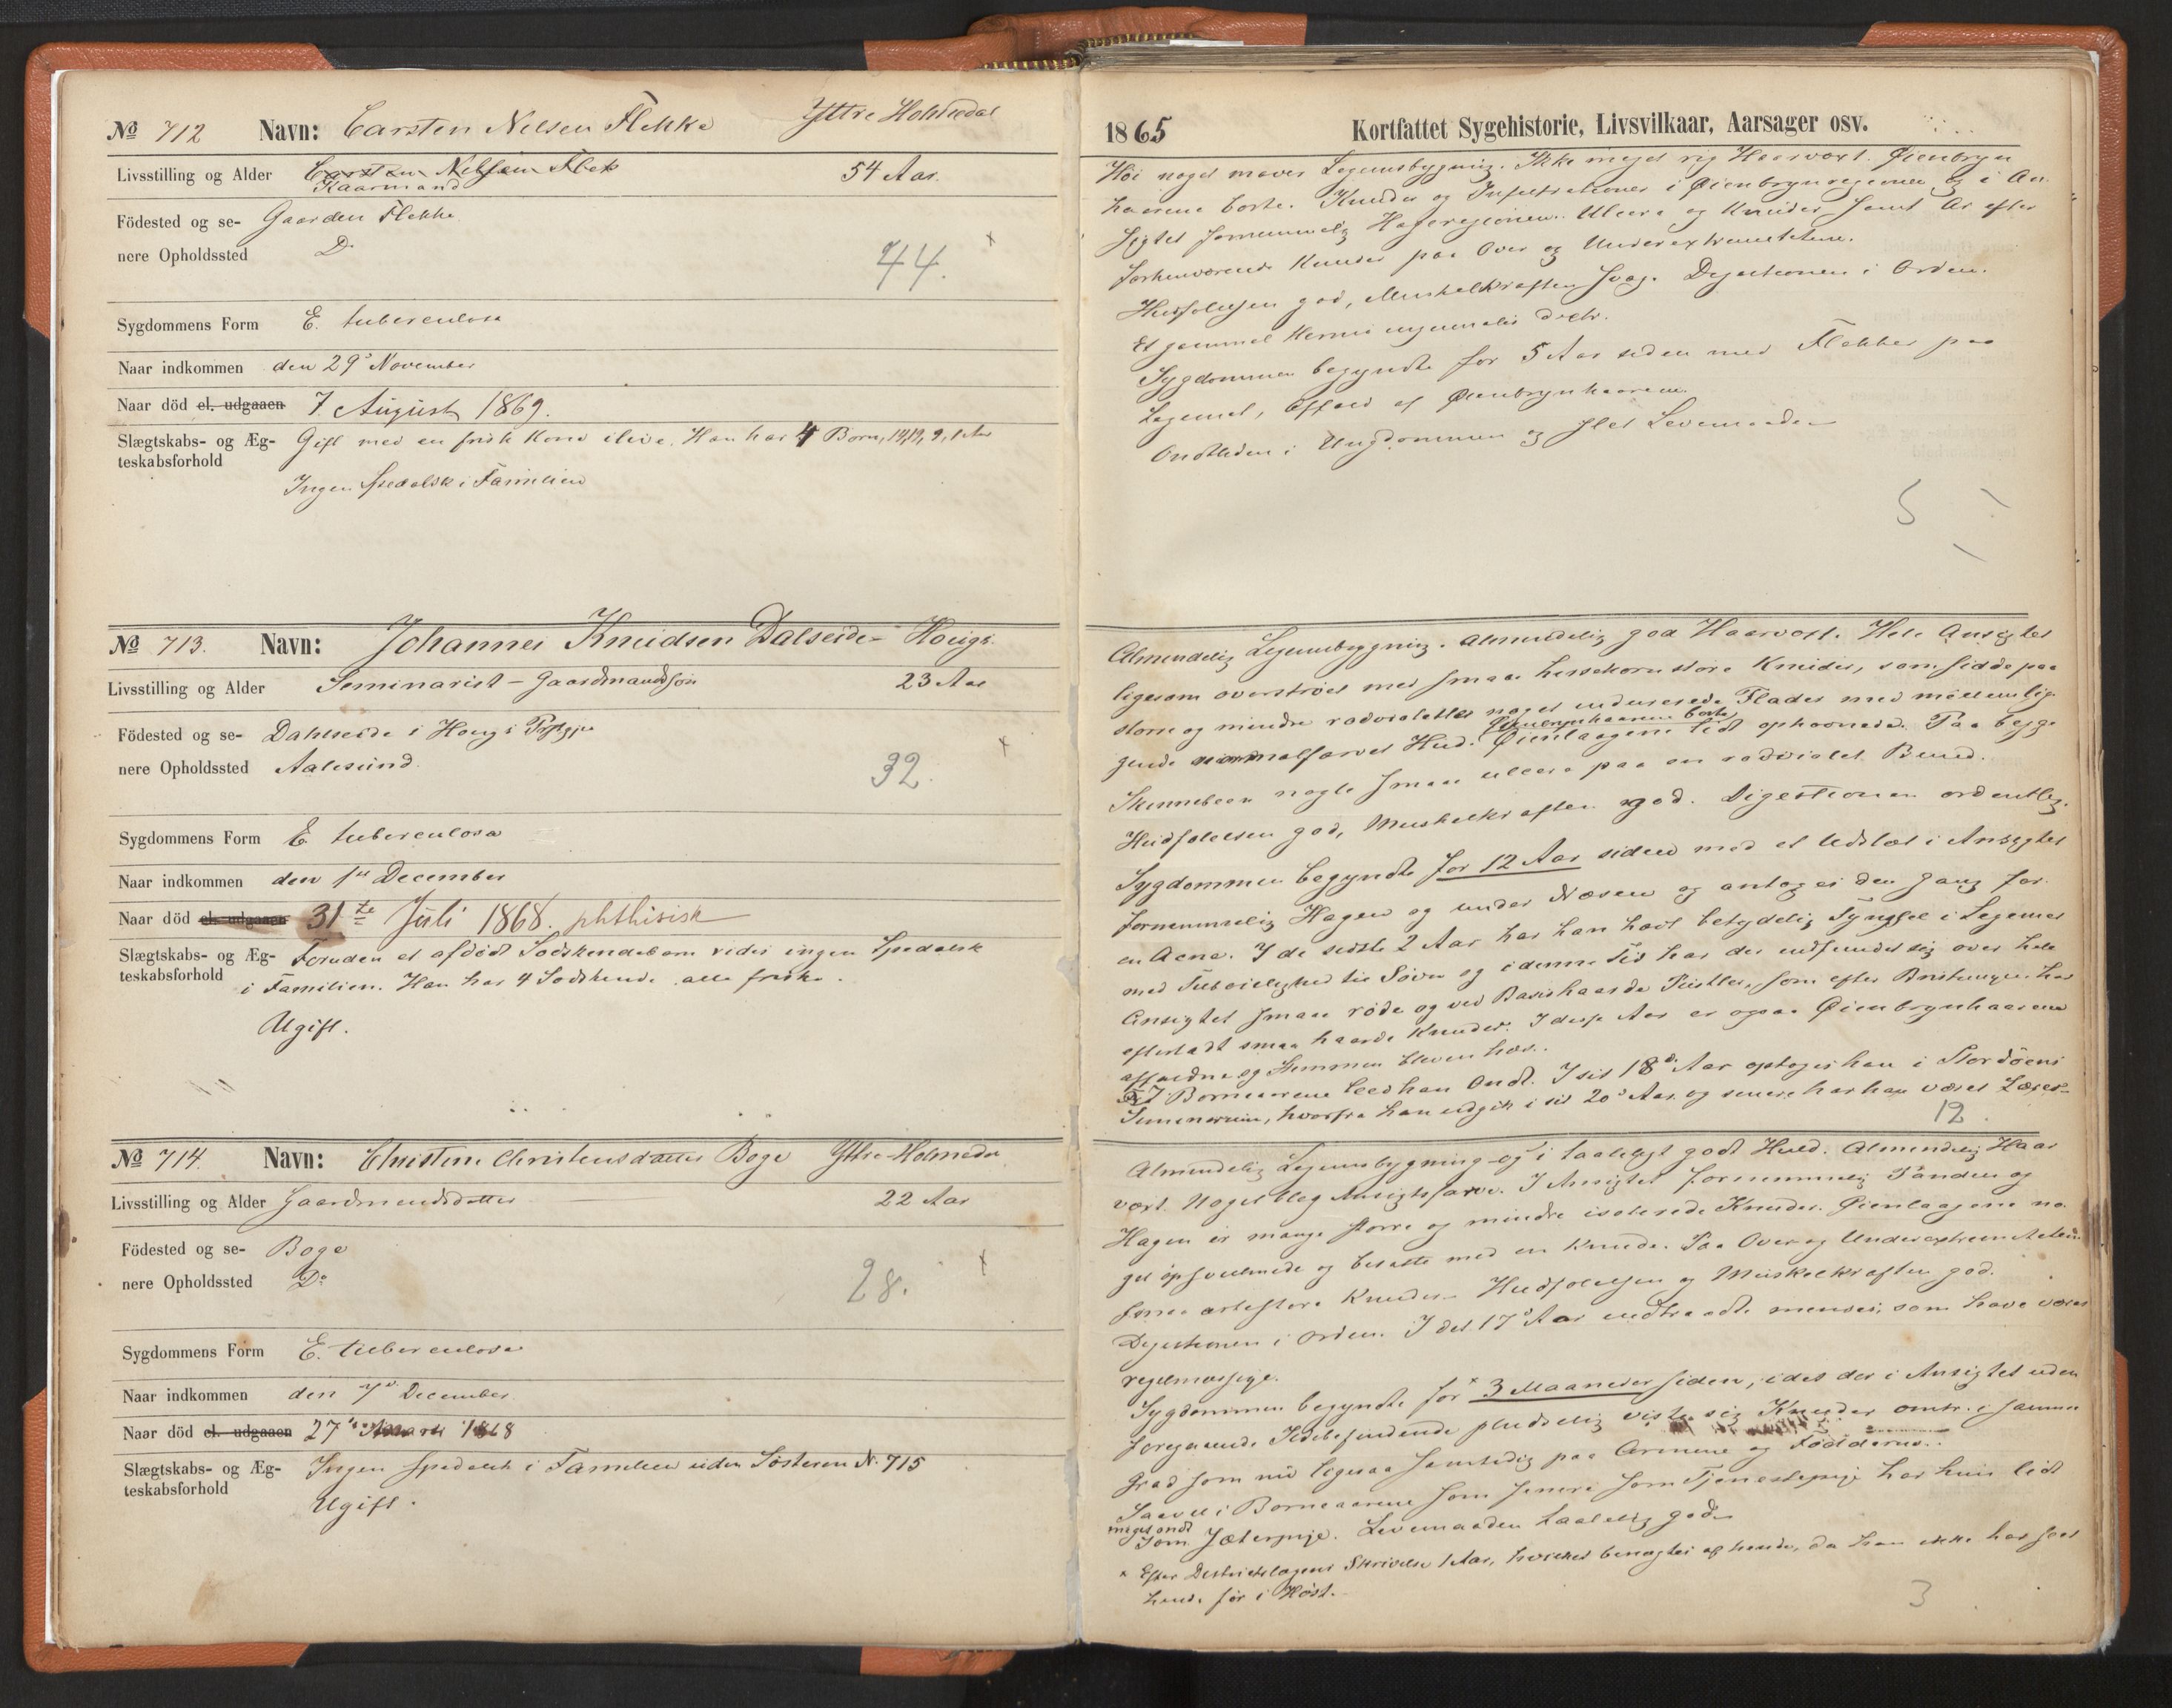 No 712 Navn: Carsten Nilsen Flekke Yttre Holmedal
Livsstilling og Alder Carsten Nilsen Flek 54 Aar.
Kaarmand
Födested og se- Gaarden Flekke
nere Opholdssted Do
44. x
Sygdommens Form E. tuberculosa
Naar indkommen den 29de November
Naar död el. udgaaen 7 August 1869.
Slægtskabs- og Æg- Gift med en frisk Kone ilive. Han har 4 Børn, 14, 12, 9, 1 Aar
teskabsforhold
Ingen spedalsk i Familien
No 713. Navn: Johannes Knudsen Dalseide - Hougs
Livsstilling og Alder Seminarist - Gaardmandssøn 23 Aar
Födested og se- Dahlseide i Hougs Præstegj.
nere Opholdssted Aalesund
32. x
Sygdommens Form E tuberculosa
Naar indkommen den 1ste December
Naar död el. udgaaen 31te Juli 1868. phthisisk
Slægtskabs- og Æg- Foruden et afdødt Sødskendebarn vides ingen Spedalsk
teskabsforhold i Familien. Han har 4 Sødskende alle friske.
Ugift.
No 714. Navn: Christine Christensdatter Boge Yttre-Holmedal
Livsstilling og Alder Gaardmandsdatter 22 Aar
Födested og se- Boge
nere Opholdssted Do
28. x
Sygdommens Form E. tuberculosa
Naar indkommen den 7de December
Naar död el. udgaaen 27de Marts 1868
Slægtskabs- og Æg- Ingen spedalsk i Familien uden Søsteren N. 715
teskabsforhold
Ugift.
1865 Kortfattet Sygehistorie, Livsvilkaar, Aarsager osv.
Høi noget maver Legemsbygning. Ikke meget rig Haarvæxt. Øienbryn
haarene borte. Knuder og Infiltrationer i Øienbrynregionen og i An
sigtet fornemmelig Hageregionen. Ulcera og Knuder samt Ar efter
forhenværende Knuder paa Over og Underextremiteterne.
Hudfølelsen god, Muskelkraften svag. Digestionen i Orden.
Et gammel Hernia inguinalis dextr.
Sygdommen begyndte for 5 Aar siden med Flekker paa
Legemet, Affald af Øienbrynhaarene.
Ondtleden i Ungdommen og slet Levemaade
5
Almendelig Legemsbygning. Almindelig god Haarvæxt. Hele Ansigtet
ligesom overstrøet med smaa hirsekornstore Knuder, som sidde paa
større og mindre rødviolette noget indurerede Flader med mellemlig-
gende normalfarvet Hud. Øienbrynhaarene borte, Øienlaagene lidt ophovnede. Paa begge
Skinneben nogle smaa ulcera paa en rødviolet Bund.
Hudfølelsen god, Muskelkraften god. Digestionen ordentlig.
Sygdommen begyndte for 12 Aar siden med et Udslæt i Ansigtet
fornemmelig Hagen og under Næsen og antoges den gang for
en Acne. I de sidste 2 Aar har han havt betydelig Tyngsel i Legemet
med Tilbøielighed til Søvn og i denne Tid har der indfundet sig over hele
Ansigtet smaa røde og ved Basis haarde Pustler, som efter Bristningen har
efterladt smaa haarde Knuder. I disse Aar er ogsaa Øienbrynhaarene
affaldne og Stemmen bleven hæs.
I Børneaarene leed han Ondt. I sit 18de Aar optoges han i Stordøens
Seminarium, hvorfra han udgik i sit 20de Aar og senere har han været Lærer
12.
Almindelig Legemsbygning og i taaleligt godt Huld. Almindelig Haar
væxt. Noget bleg Ansigtsfarve. I Ansigtet fornemmelig Panden og
Hagen er mange større og mindre isolerede Knuder. Øienlaagene no
get opsvulmede og besatte med en Knude. Paa Over og Underextremiteterne
smaa ertestore Knuder. Hudfølelsen og Muskelkraften god.
Digestionen i Orden. I det 17de Aar indtraadte menses, som have været
regelmæssige.
Sygdommen begyndte for x 3 Maaneder siden, idet der i Ansigtet uden
foregaaende Ildebefindende pludselig viste sig Knuder omtr. i samme
Grad som nu ligesaa samtidig paa Armene og Fødderne.
Saavel i Børneaarene som senere som Tjenestepige har hun lidt
meget ondt
som Jæterpige. Levemaaden taalelig god.
x Efter Districtslægens Skrivelse 1 Aar, hvilket benægtes af hende, da han ikke har seet
hende før i Høst.
3